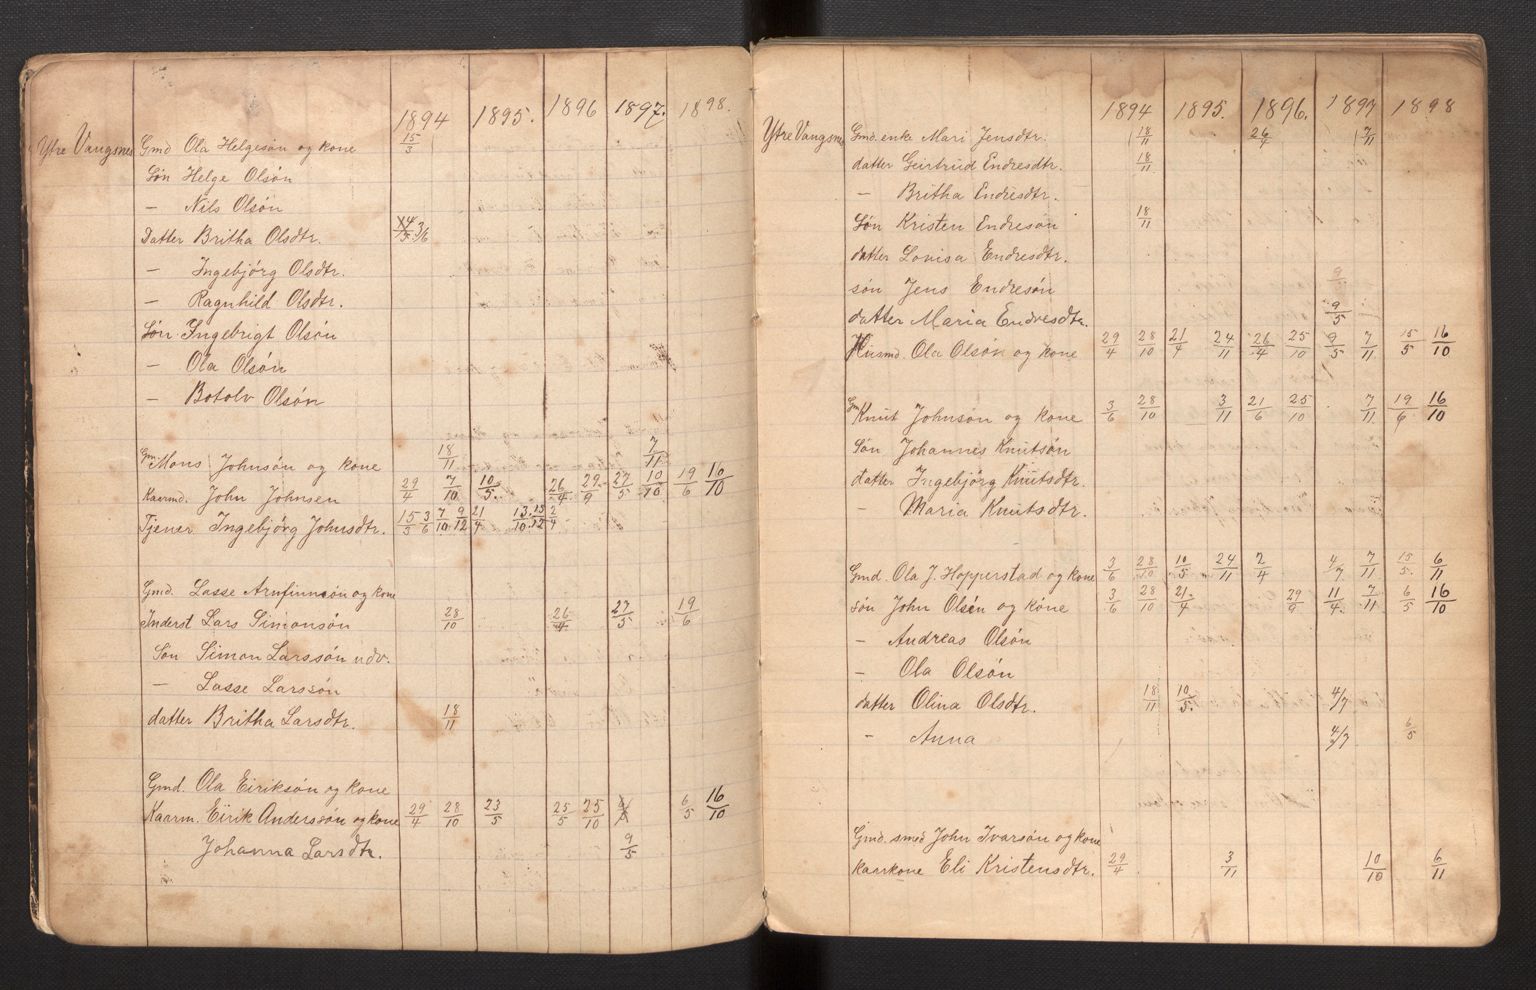 1894 1895. 1896 1897. 1898.
Ytre Vangsnes Gmd Ola Helgesøn og kone 15/3
Søn Helge Olsøn
— Nils Olsøn
Datter Britha Olsdtr. 14/5 3/6
— Ingebjörg Olsdtr.
— Ragnhild Olsdtr.
Søn Ingebrigt Olsøn
— Ola Olsøn
— Botolv Olsøn
Gm. Mons Johnsøn og kone 18/11 7/11
Kaarmd. John Johnsen 29/4 7/10 10/5. 26/4 29/9 27/5 10/10 19/6 16/10
Tjener Ingebjörg Johnsdtr. 15/3 3/6 7/10 9/12 21/4 13/10 13/12 2/4
Gmd. Lasse Arnfinnsøn og kone
Inderst Lars Simonsøn 28/10 26/4 27/5 19/6
Søn Simon Larssøn udv.
— Lasse Larssøn
datter Britha Larsdtr. 18/11
Gmd. Ola Eiriksøn og kone
Kaarm. Eirik Anderssøn og kone 29/4 28/10 23/5 25/5 25/10 6/5 16/10
Johanna Larsdtr. 9/5
1894 1895. 1896. 1897 1898
Ytre Vangsnes Gmd. enke Mari Jensdtr. 18/11 26/4 7/11
datter Geirtrud Endresdtr. 18/11
— Britha Endresdtr.
Søn Kristen Endresøn 18/11
datter Lovisa Endresdtr.
søn Jens Endresøn 9/5
datter Maria Endresdtr. 9/5
Husmd. Ola Olsøn og kone 29/4 28/10 21/4 24/11 26/4 25/10 9/5 7/11 15/5 16/10
Gm Knut Johnsøn og kone 3/6 28/10 3/11 21/6 25/10 7/11. 19/6 16/10
Søn Johannes Knutsøn
datter Ingebjörg Knutsdtr.
— Maria Knutsdtr.
Gmd. Ola J. Hopperstad og kone 3/6 28/10 10/5 24/11 2/4 4/7 7/11 15/5. 6/11
søn John Olsén og kone 3/6 28/10 21/4 29/9 11/4 7/11 6/5 16/10
— Andreas Olsøn
— Ola Olsøn
datter Olina Olsdtr. 18/11 10/5. 4/7
— Anna 4/7 6/5
Gmd. smed John Ivarsøn og kone
kaarkone Eli Kristensdtr. 29/4 3/11 10/10 6/11